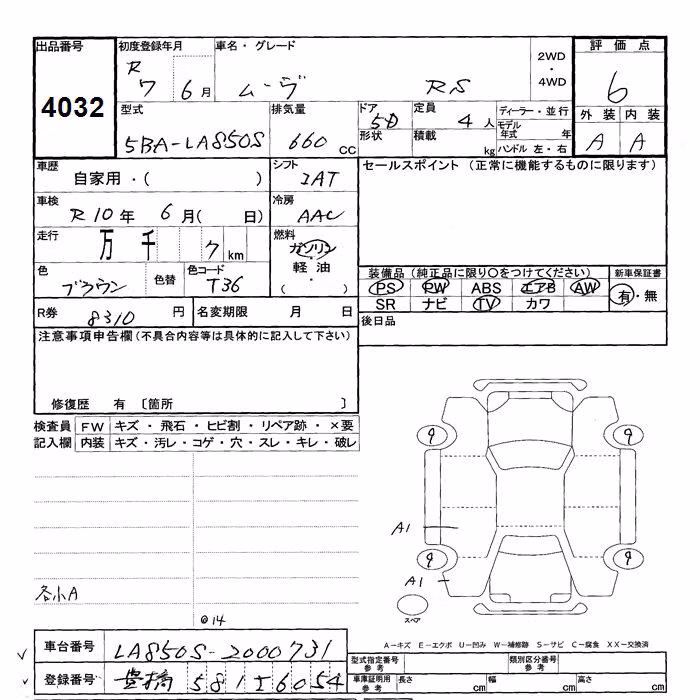 出品番号
4032
初度登録年月
R 7 6月
車名・グレード
ムーヴ RS
2WD・4WD
評価点
6
外装 内装
A A
型式
5BA-LA850S
排気量
660 cc
ドア形状
5D
定員
4人
積載
kg
ディーラー・並行
モデル年式 年
ハンドル 左・右
車歴
自家用・( )
シフト
IAT
車検
R10年 6月( 日)
冷房
AAC
走行
万 千 7 km
燃料
ガソリン
軽油
( ・ )
色
ブラウン
色替
色コード
T36
R券
8310 円
名変期限 月 日
セールスポイント (正常に機能するものに限ります)
装備品 (純正品に限り○をつけてください)
新車保証書
PS PW ABS エアB AW
有・無
SR ナビ TV カワ
後日品
注意事項申告欄(不具合内容等は具体的に記入して下さい)
修復歴 有 〔箇所 〕
検査員記入欄
FW キズ・飛石・ヒビ割・リペア跡・×要
内装 キズ・汚レ・コゲ・穴・スレ・キレ・破レ
9 9
A1
9 9
A1
スペア
各小A
@14
A-キズ E-エクボ U-凹み W-補修跡 S-サビ C-腐食 XX-交換済
車台番号
LA850S-2000731
登録番号
豊橋 581 5 6054
型式指定番号 参考
類別区分番号 参考
車庫証明用 参考
長さ cm 幅 cm 高さ cm